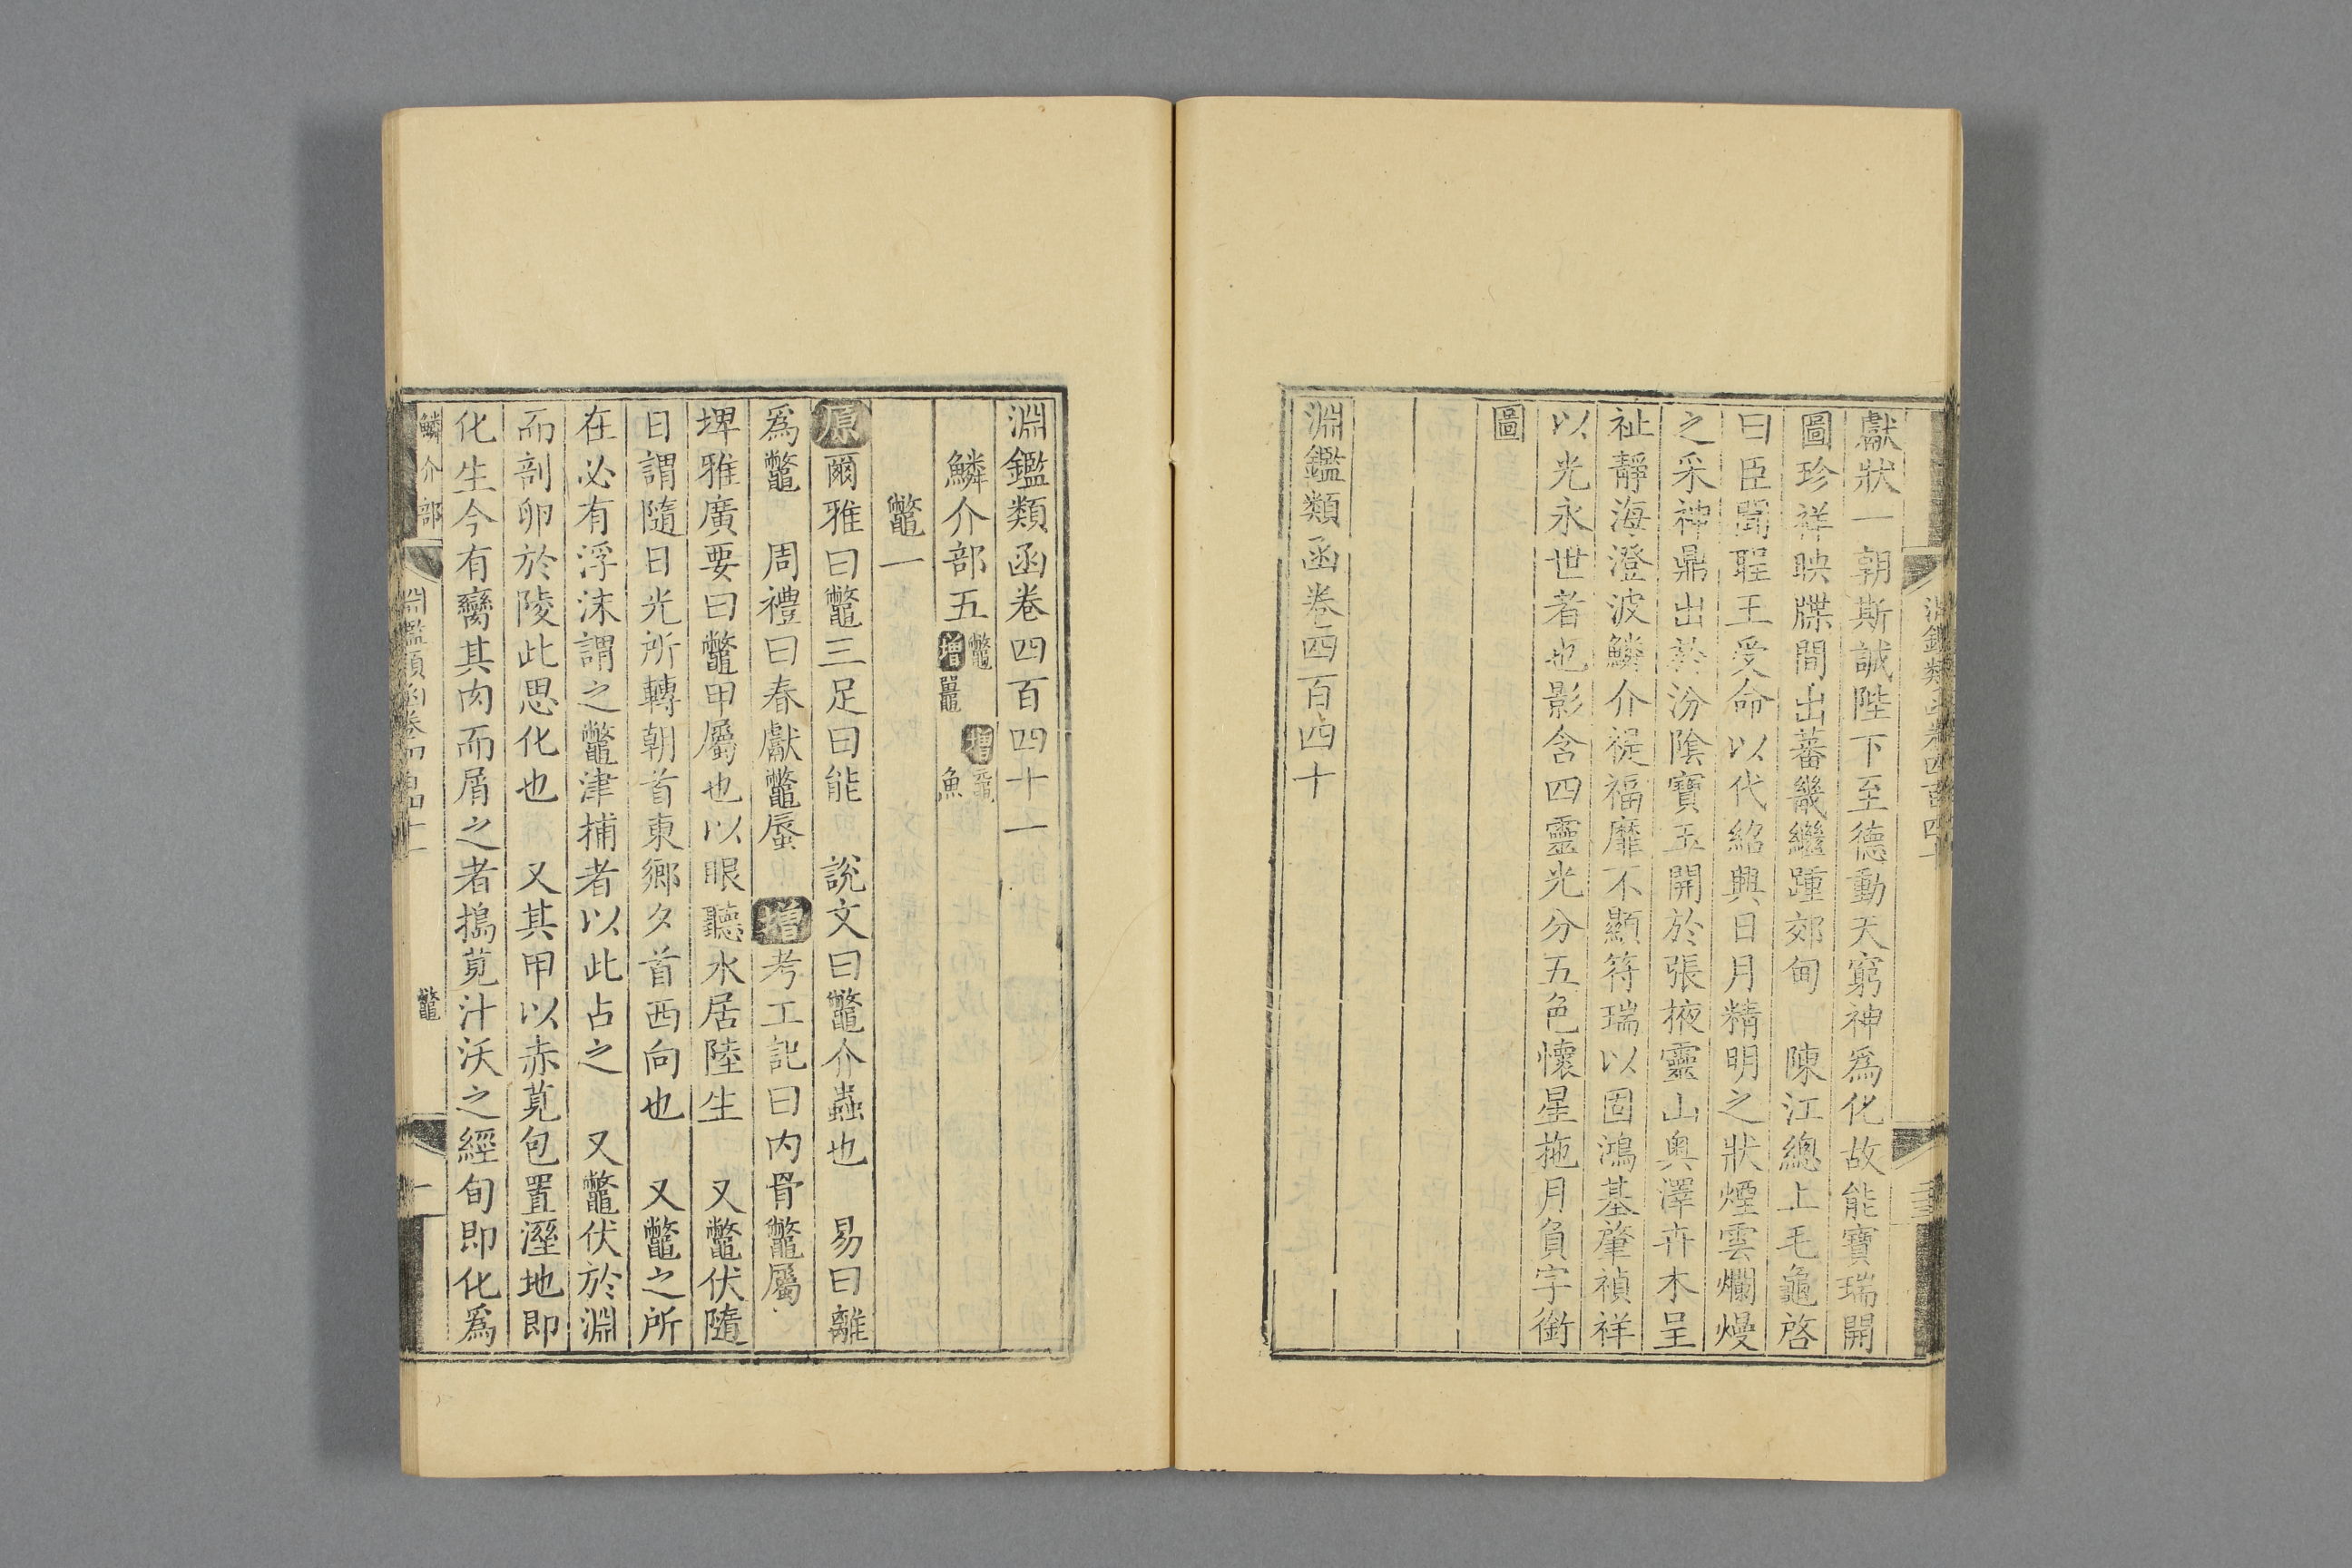 獻狀一朝斯誠陛下至德動天窮神爲化故能寶瑞開
圖珍祥映牒間出蕃畿繼踵郊甸　陳江總上毛龜啓
曰臣聞聖王受命以代紹興日月精明之狀煙雲爛熳
之采神鼎出於汾陰寶玉開於張掖靈山奧澤卉木呈
祉靜海澄波鱗介禔福靡不顯符瑞以固鴻基肇禎祥
以光永世者也影含四靈光分五色懷星拖月負字銜
圖
淵鑑類函卷四百四十
淵鑑類函卷四百四十一
鱗介部五 鼈 增鼉 增黿 魚
鼈一
原爾雅曰鼈三足曰能　說文曰鼈介蟲也　易曰離
爲鼈　周禮曰春獻鼈蜃　增考工記曰內骨鼈屬
埤雅廣要曰鼈甲屬也以眼聽水居陸生　又鼈伏隨
日謂隨日光所轉朝首東鄉夕首西向也　又鼈之所
在必有浮沫謂之鼈津捕者以此占之　又鼈伏於淵
而剖卵於陵此思化也　又其甲以赤莧包置溼地即
化生今有臠其肉而屑之者搗莧汁沃之經旬即化爲
鱗介部
淵鑑類函卷四百四十一
鼈
一